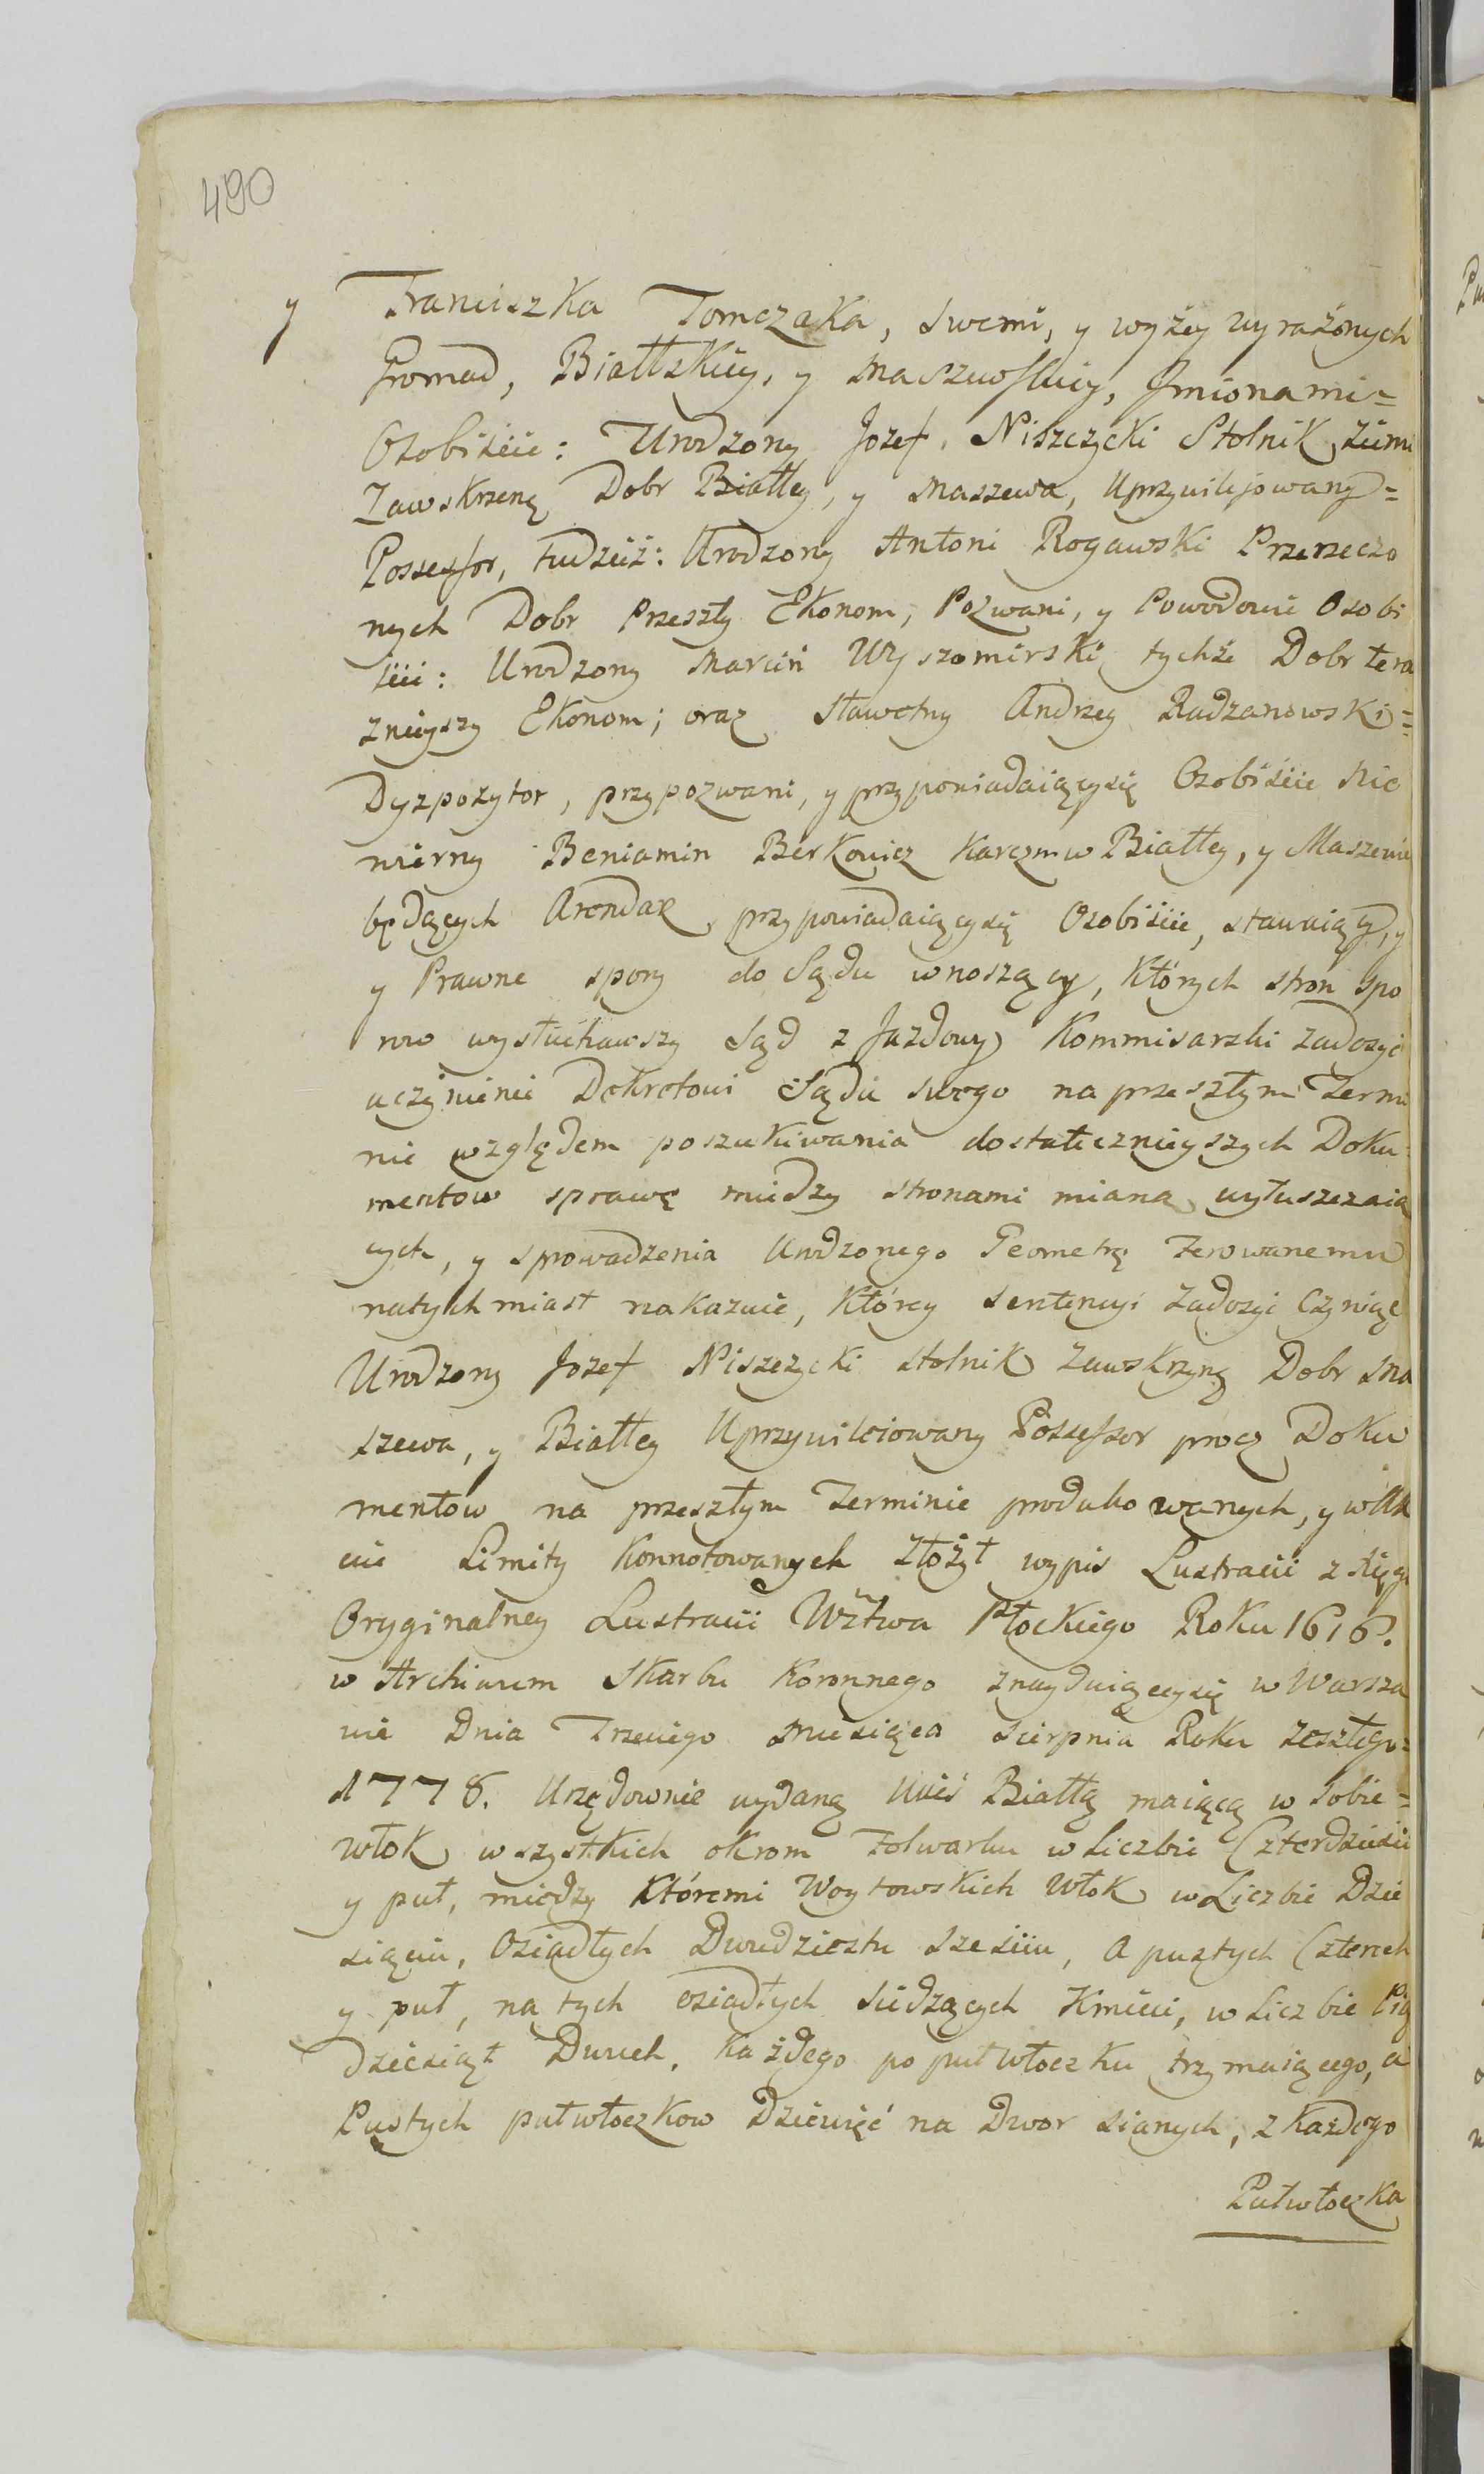 490
y Franciszka Tomczaka, swemi, y wyżey wyrażonych
Gromad, Biallskiey, y Maszewskiey, Jmionami=
Osobiście: Urodzony Jozef Niszczycki Stolnik Ziemi
Zawskrzeną Dobr Białłey, y Maszewa, Uprzywilijowany=
Possessor, tudzież: Urodzony Antoni Rogawski Przerzeczo
nych Dobr Przeszły Ekonom, Pozwani, y Powodowie Osobi
ście: Urodzony Marcin Wyszomirski tychże Dobr tera
znieyszy Ekonom; oraz Sławetny Andrzey Radzanowski=
Dyzpozytor, przypozwani, y przypowiadaiącysię Osobiście Nie
wierny Beniamin Berkowicz Karczmw Białłey, y Maszewie
będących Arendarz przypowiadaiącysię Osobiście, stawaiący, y
y Prawne spory do Sądu wnoszący, Których stron spo
row wysłuchawszy Sąd zJazdowy Kommisarski zadosyć
uczynienie Dekretowi Sądu swego na przeszłym Termi
nie względem poszukiwania dostatecznieyszych Doku
mentow sprawę miedzy stronami mianą wyłuszczaią
cych, y sprowadzenia Urodzonego Geometrę ferowanemu
natychmiast nakazuie, Którey sentencyi zadosyć Czyniąc
Urodzony Jozef Niszczycki stolnik Zawskrzyną Dobr Ma
szewa, y Białłey Uprzywileiowany Possessor procz Doku
mentow na przeszłym Terminie produkowanych, y w Ak
cie Limity Konnotowanych złożył wypis Lustracii z Xięgi
Oryginalney Lustracii Wztwa Płockiego Roku 1616.
w Archiwum Skarbu Koronnego znayduiącysię w Warsza
wie Dnia Trzeciego Miesiąca Sierpnia Roku zeszłego=
1778. Urzędownie wydaną Wieś Białłą maiącą w sobie=
włok wszystkich okrom Folwarku w Liczbie Czterdzieści
y puł, miedzy Któremi Woytowskich włok w Liczbie Dzie
sięciu, Osiadłych Dwudziestu sześciu, a pustych Czterech
y puł, na tych osiadłych siedzących Kmieci, w Liczbie Pię
dziesiąt Dwuch, Każdego po pułwłoczku trzymaiącego, a
Pustych pułwłoczkow Dziewięć na Dwor sianych, z Każdego
Pułwłoczka